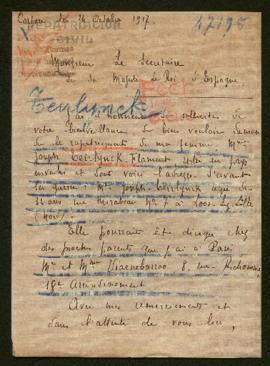 RAPATRIEMENT
CIVIL
le 24 Octobre 1917.
47195
Monsieur Le Secrétaire
de Sa Majesté Le Roi d'Espagne
Teirlynck
J'ai l'honneur de solliciter de
votre bienveillance de bien vouloir
le rapatriement de ma femme Mme
Joseph Teirlynck Flament restée en pays
envahi et dont voici l'adresse d'avant
la guerre : Mme Joseph Teirlynck âgée de
ans rue Mirabeau à Loos lez Lille
(Nord)
Elle pourrait être dirigée chez
des proches parents que j'ai à Paris
Mr et Mme 8, rue Richomme,
18e Arrondissement
Avec mes remerciements et
dans l'attente de vous lire,